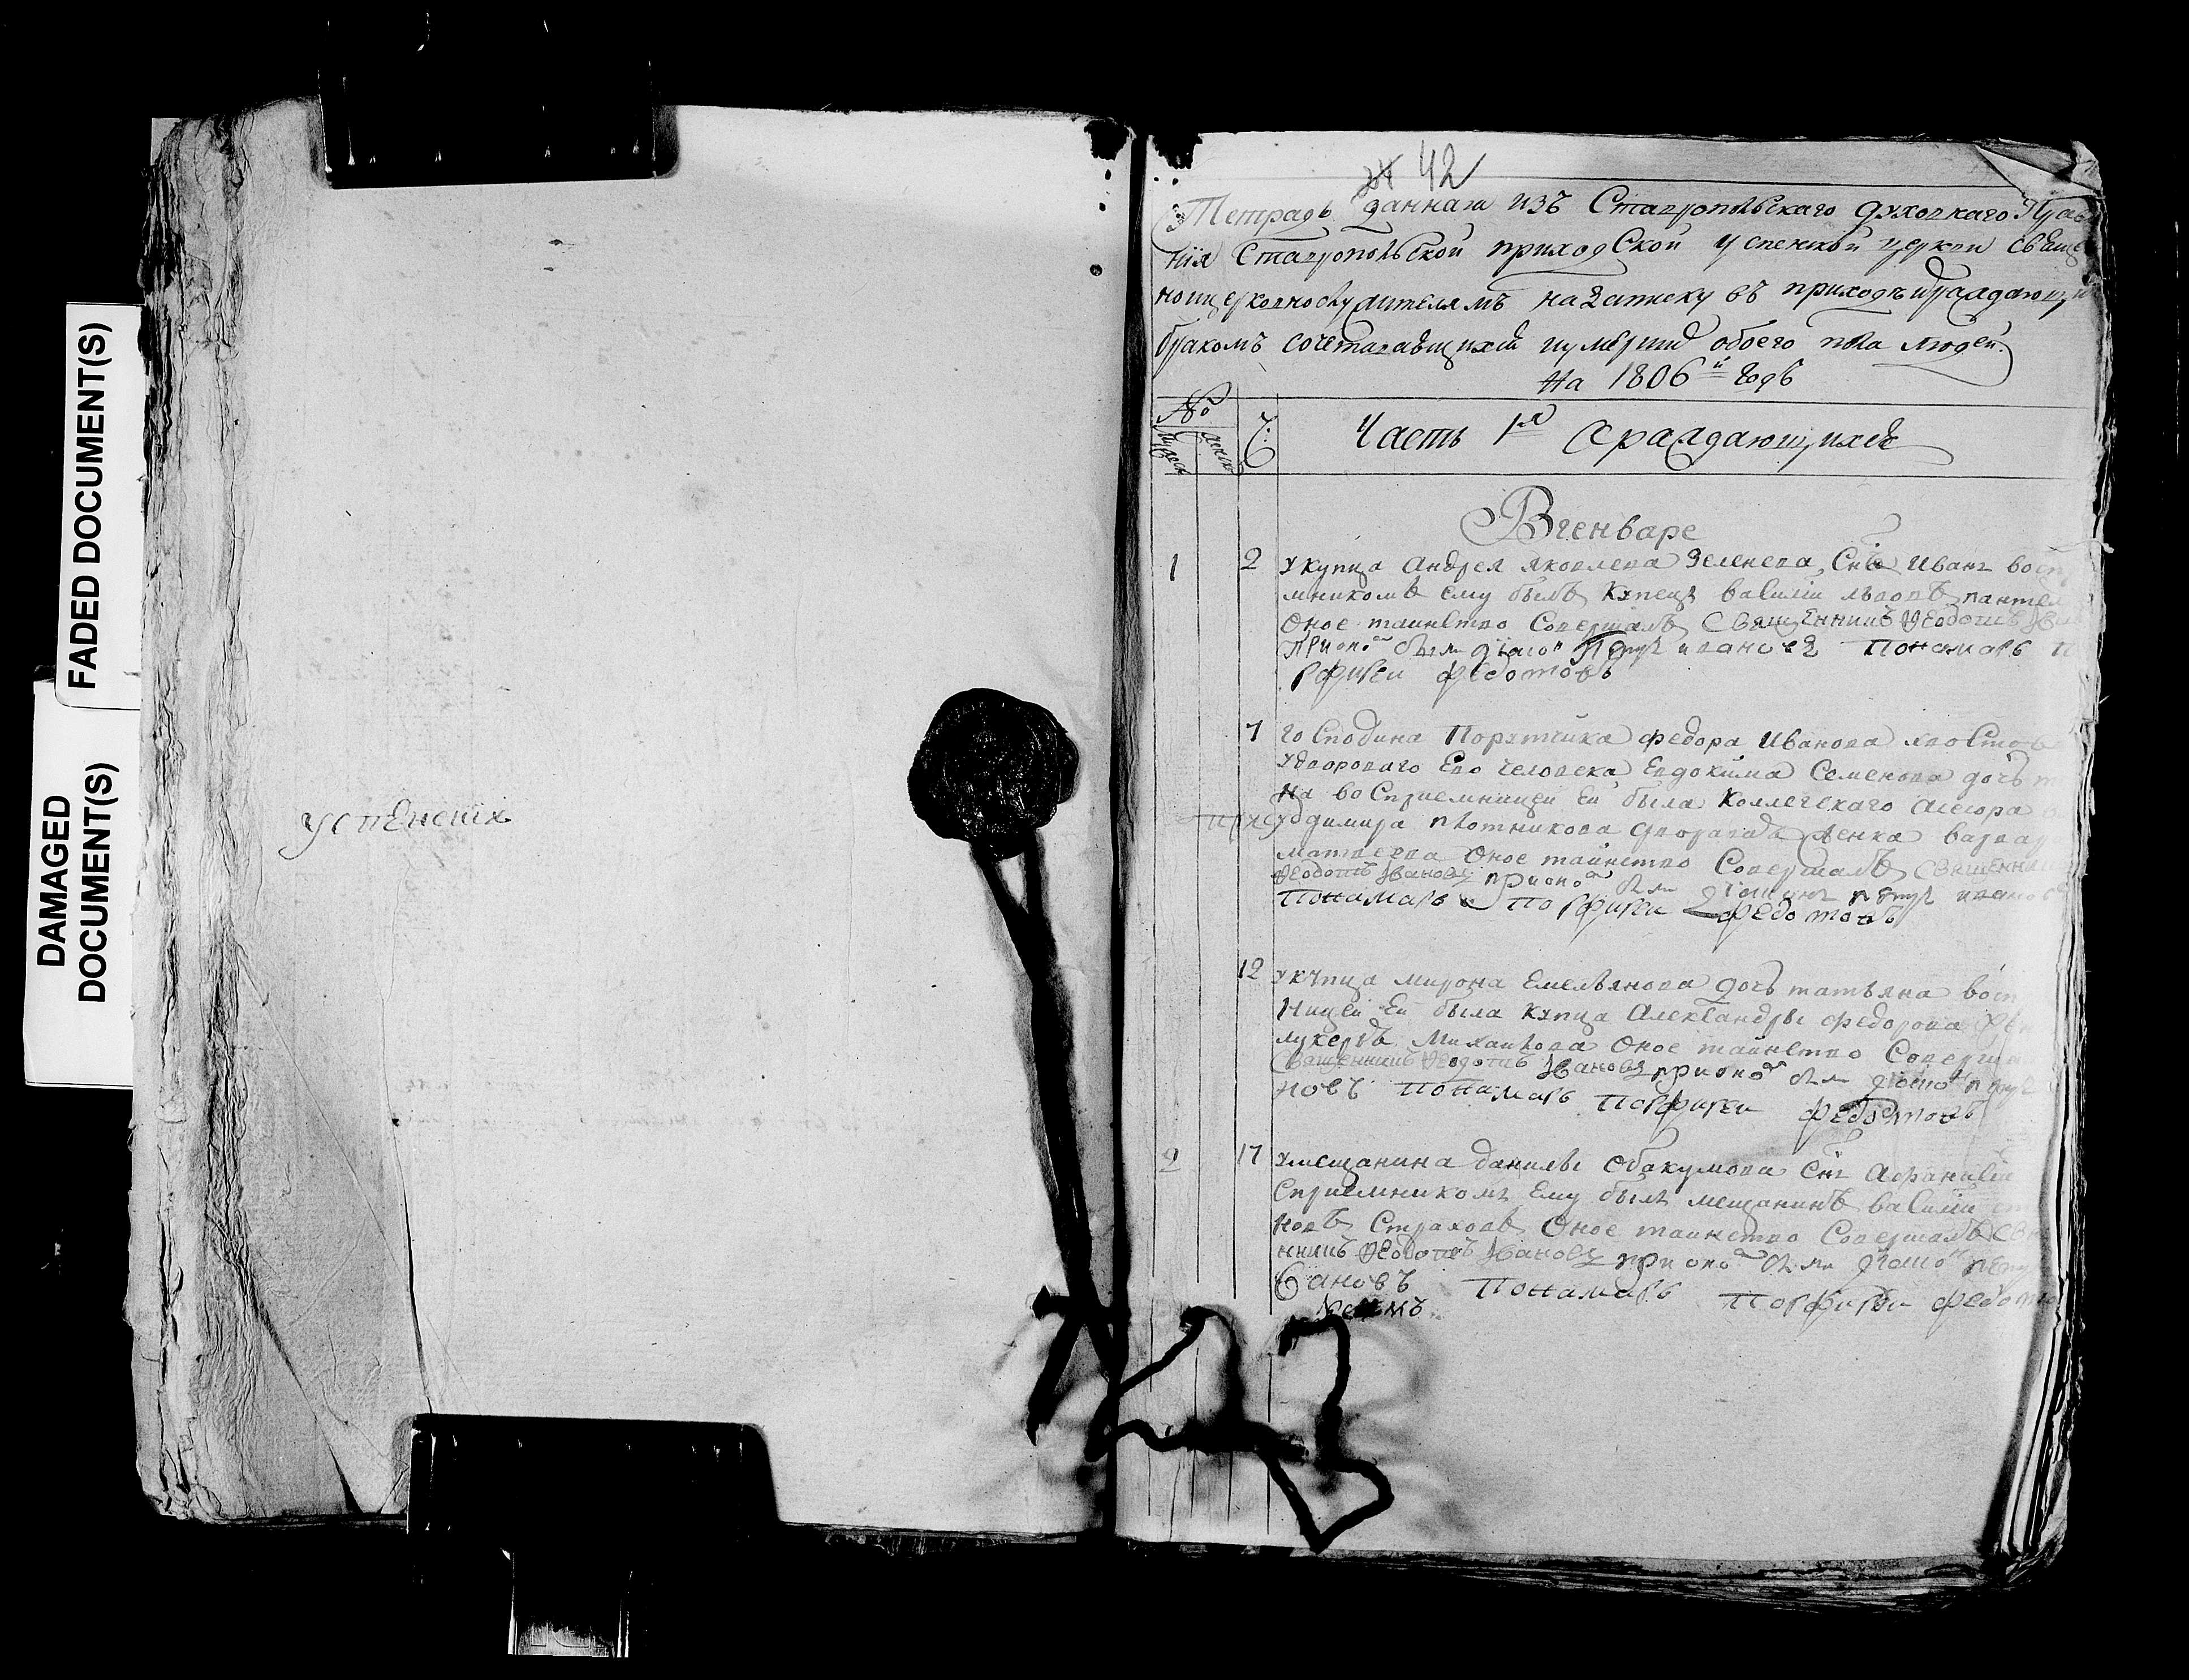 FADED DOCUMENT(S)
DAMAGED
DOCUMENT(S)
Успенских
42
Тетрадь данная изъ Ставропольскаго духовнаго Прав
нія Ставропольской приходской успенской церкви свяще
ноцерковнослужителямъ на записку въ приходъ
бракомъ сочетавшихся и умершихъ обоего пола людей.
на 1806й годъ
№
Ч:
Часть 1я о раждающихся
В генваре
1 2 У купца Андрея Яковлева Зеленева Снъ Иванъ вос
мникомъ ему былъ купецъ василий пантел
Оное таинство Совершалъ Священникъ Феодотъ
При оно были Петръ ивановъ Пономарь П
рфирей федотовъ
7 Господина Порутчика федора Иванова
У двороваго Его человека Евдокима Семенова дочь
на воСприемницей ей была Коллежскаго асесора
димира плотникова дворовая девка варвар
матвеева Оное таинство Совершалъ Священни
Феодотъ Ивановъ при оно были Петръ ивано
Пономарь Порфирей федотовъ
12 У купца мирона Емельянова дочь татьяна вос
ницей Ей была купца Александры федорова
лукерья Михайлова Оное таинство Соверша
Священникъ Феодотъ Ивановъ при оно были петръ
новъ Пономарь Порфирей федотовъ
2 17 У мещанина данилы Обакумова Снъ Афанасий
Сприемникомъ Ему былъ мещанинъ василий
новъ Страховъ Оное таинство Совершалъ Свя
нникъ Феодотъ Ивановъ при оно были петр
вановъ Пономарь Порфирей федото